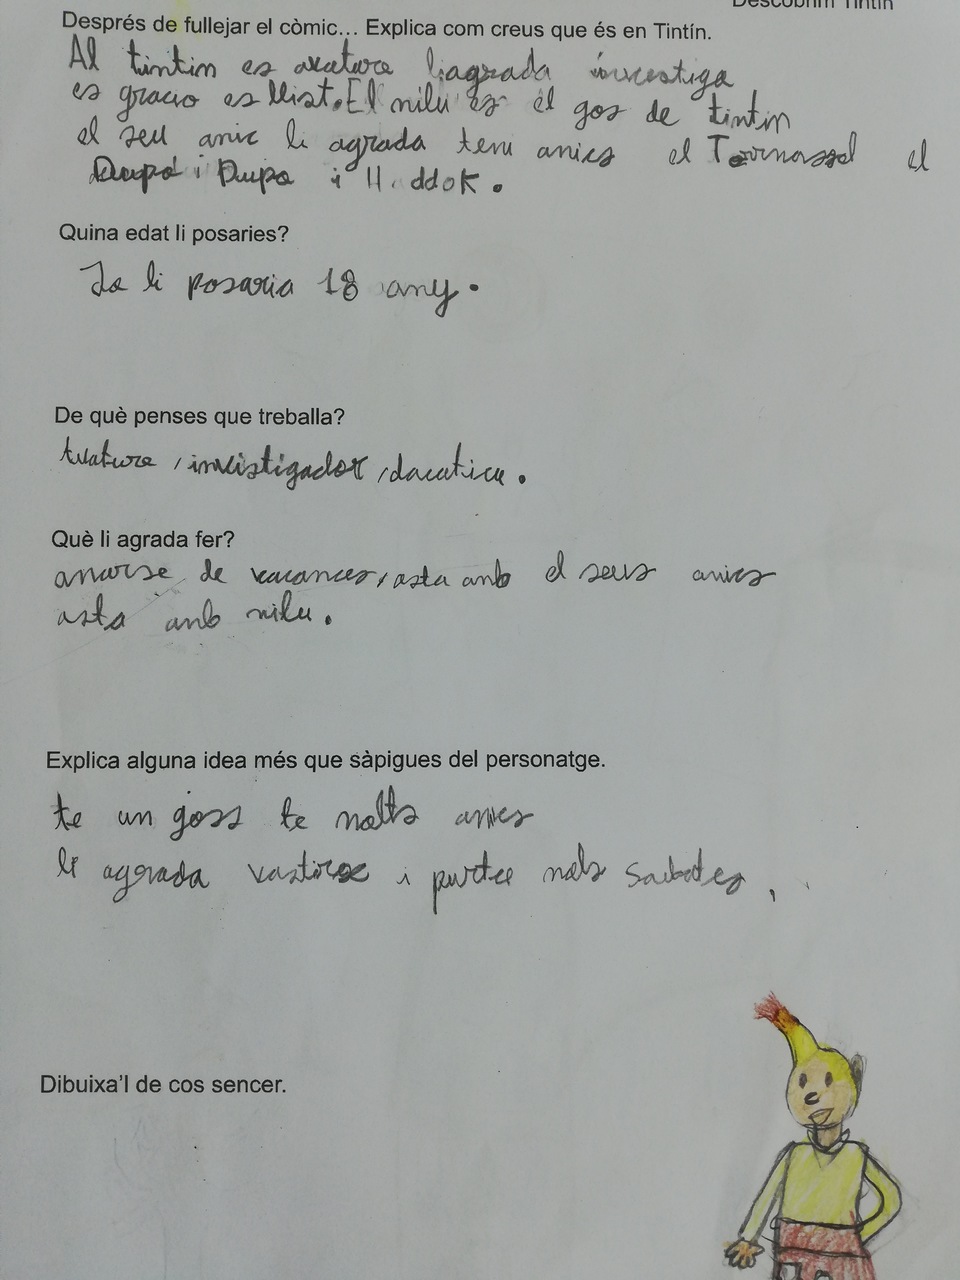 Descobrim Tintín
Després de fullejar el còmic... Explica com creus que és en Tintín.
Al tintin es li agrada investiga
es gracio es llist. El nilu es el gos de tintin
el seu amic li agrada teni amics el Tornassol el
i H ddok.
Quina edat li posaries?
Jo li posaria 18 any.
De què penses que treballa?
, investigador,
Què li agrada fer?
anarse de vacances, asta amb el seus amics
asta amb nilu.
Explica alguna idea més que sàpigues del personatge.
te un goss te molts amics
li agrada vastirse i
Dibuixa'l de cos sencer.